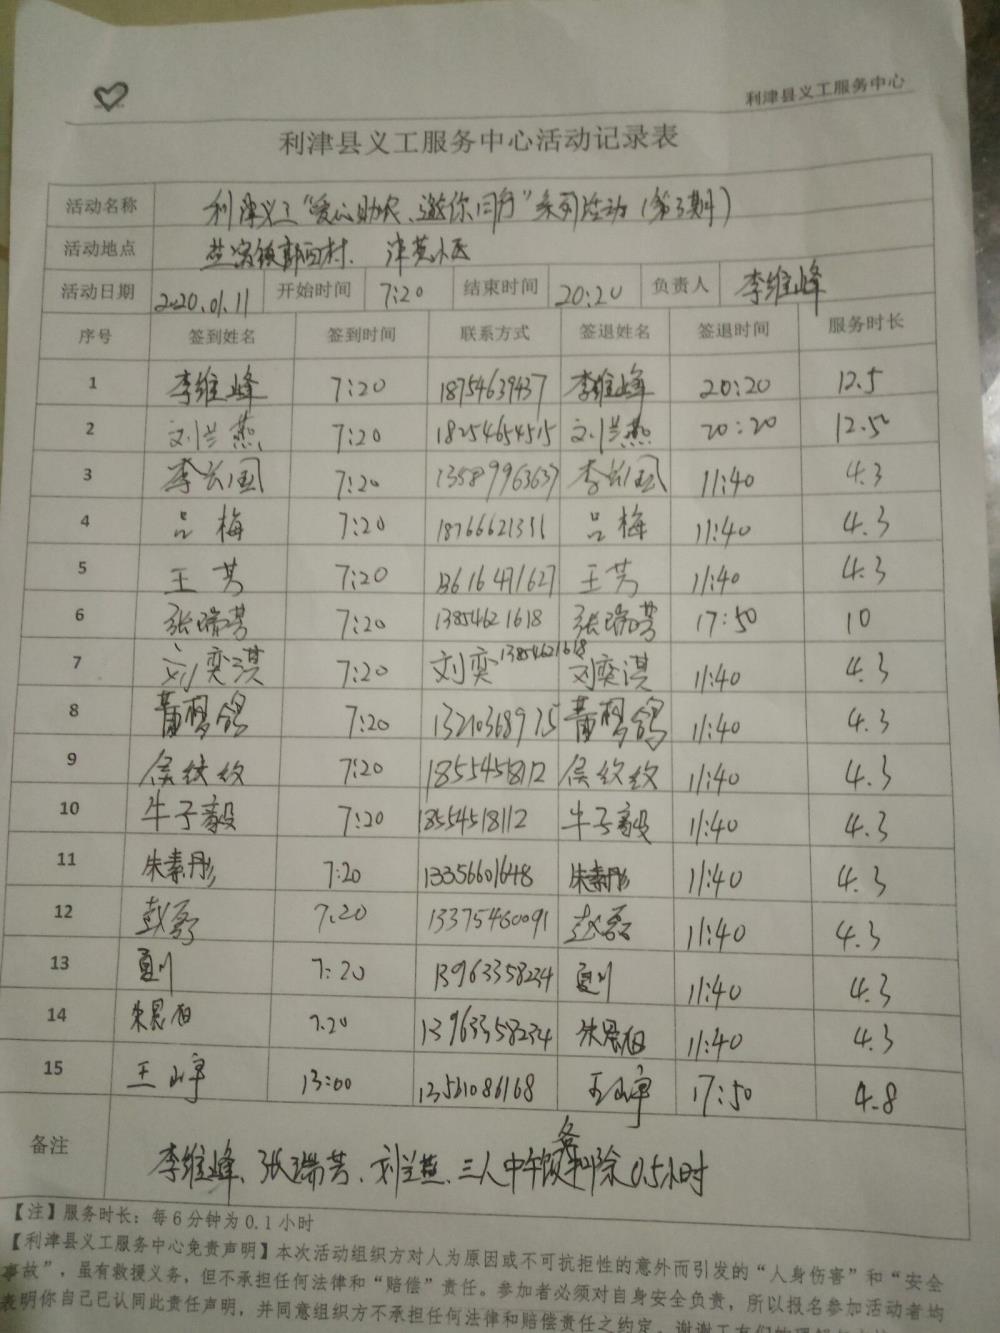 利津县义工服务中心
利津县义工服务中心活动记录表
活动名称 利津义工“爱心助农、邀你同行”系列活动(第3期)
活动地点 盐窝镇郭西村、津苑小区
活动日期 2020.01.11 开始时间 7:20 结束时间 20:20 负责人 李维峰
序号 签到姓名 签到时间 联系方式 签退姓名 签退时间 服务时长
1 李维峰 7:20 18754639437 李维峰 20:20 12.5
2 刘兰燕 7:20 18254654515 刘兰燕 20:20 12.5
3 李长国 7:20 13589963637 李长国 11:40 4.3
4 吕梅 7:20 18766621311 吕梅 11:40 4.3
5 王芳 7:20 13616471627 王芳 11:40 4.3
6 张瑞芳 7:20 13854621618 张瑞芳 17:50 10
7 刘奕淇 7:20 刘奕 13854621618 刘奕淇 11:40 4.3
8 董梦鸽 7:20 13210368975 董梦鸽 11:40 4.3
9 侯纹纹 7:20 18554518112 侯纹纹 11:40 4.3
10 牛子毅 7:20 18554518112 牛子毅 11:40 4.3
11 朱素彤 7:20 13356601648 朱素彤 11:40 4.3
12 赵磊 7:20 13375460091 赵磊 11:40 4.3
13 夏川 7:20 13963358234 夏川 11:40 4.3
14 7:20 13963358234 11:40 4.3
15 王山宁 13:00 13561086168 王山宁 17:50 4.8
备注 李维峰、张瑞芳、刘兰燕、三人中午饭各扣除0.5小时
【注】服务时长：每6分钟为0.1小时
【利津县义工服务中心免责声明】本次活动组织方对人为原因或不可抗拒性的意外而引发的“人身伤害”和“安全
事故”，虽有救援义务，但不承担任何法律和“赔偿”责任。参加者必须对自身安全负责，所以报名参加活动者均
表明你自己已认同此责任声明，并同意组织方不承担任何法律和赔偿责任之约定。谢谢